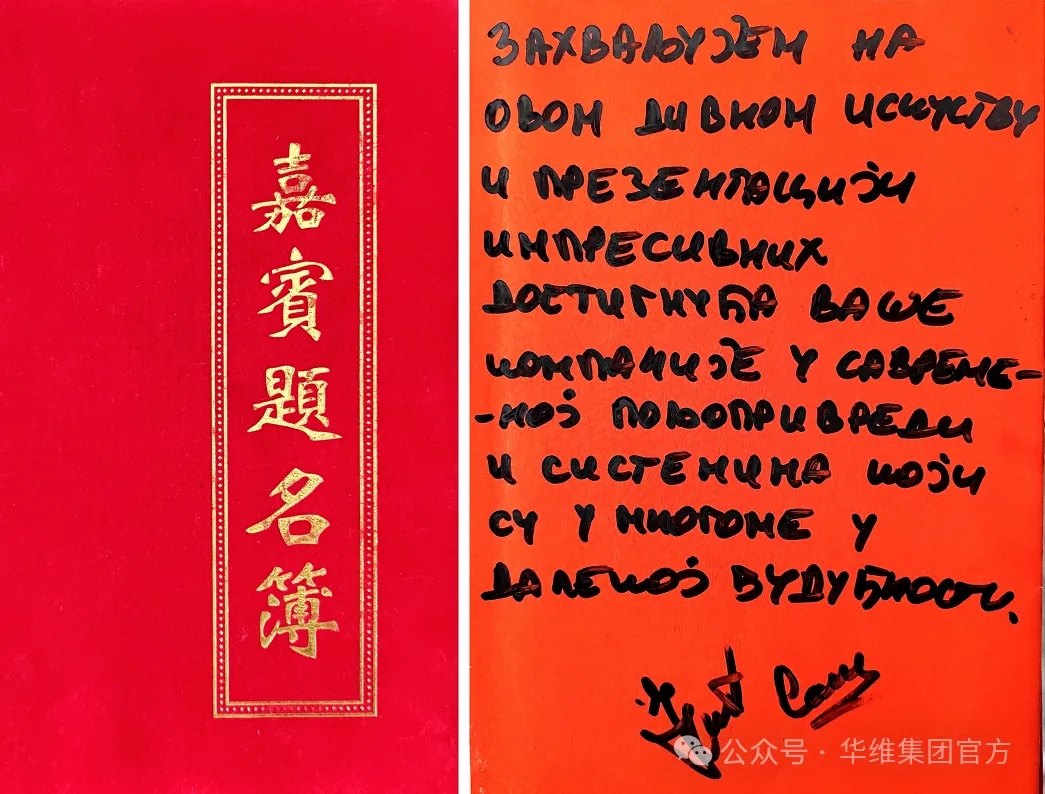 嘉賓題名簿
ЗАХВАЉУЈЕМ НА
ОВОМ ДИВНОМ ИСКУСТВУ
И ПРЕЗЕНТАЦИЈИ
ИМПРЕСИВНИХ
ДОСТИГНУЋА ВАШЕ
КОМПАНИЈЕ У САВРЕМЕ-
-НОЈ ПОЉОПРИВРЕДИ
И СИСТЕМИМА КОЈИ
СУ У МНОГОМЕ У
ДАЛЕКОЈ БУДУЋНОСТИ.
公众号·华维集团官方